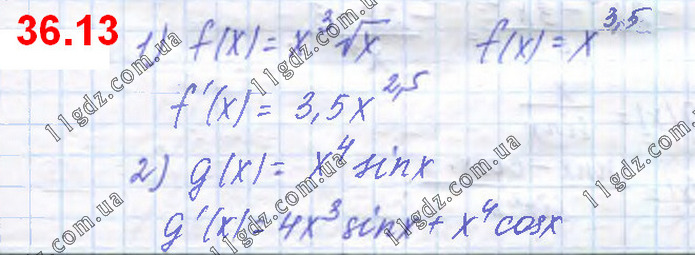 36.13
1) f(x) = x³√x f(x) = x^3,5
f'(x) = 3,5x^2,5
2) g(x) = x⁴ sinx
g'(x) = 4x³ sinx + x⁴ cosx
11gdz.com.ua
11gdz.com.ua
11gdz.com.ua
11gdz.com.ua
11gdz.com.ua
11gdz.com.ua
11gdz.com.ua